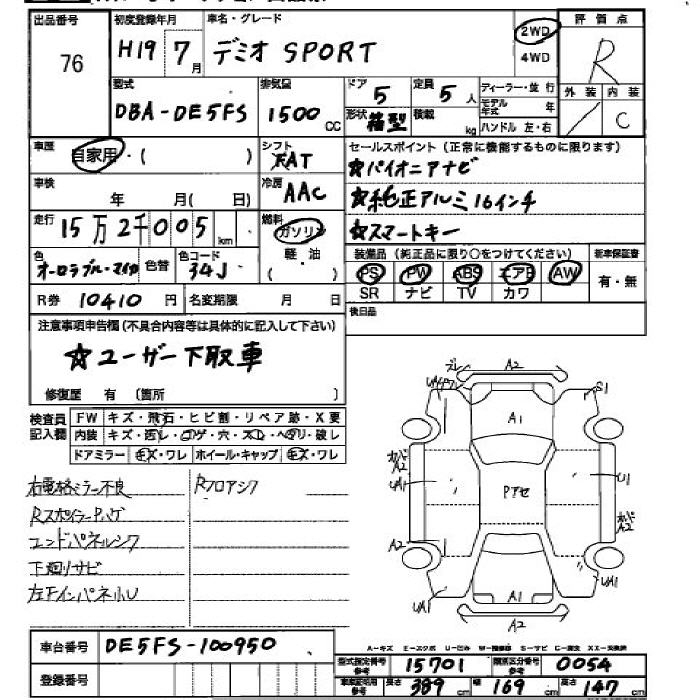 出品番号 初度登録年月 車名・グレード 評価点
76 H19 7月 デミオ SPORT 2WD 4WD R
型式 排気量 ドア 定員 ディーラー・並行 外装 内装
DBA-DE5FS 1500 CC 5 5人 モデル年式 年 / C
形状 箱型 積載 kg ハンドル 左・右
車歴 自家用・( ) シフト FAT セールスポイント(正常に機能するものに限ります)
☆パイオニアナビ
車検 年 月( 日) 冷房 AAC ☆純正アルミ16インチ
走行 15万2千005km 燃料 ガソリン ☆スマートキー
軽・油 ( ) 装備品(純正品に限り○をつけてください) 新車保証書
色 オーロラブルーマイカ 色替 色コード 34J PS PW ABS エアB AW 有・無
SR ナビ TV カワ
R券 10410 円 名変期限 月 日 後日品
注意事項申告欄(不具合内容等は具体的に記入して下さい)
☆ユーザー下取車
修復歴 有 〔箇所 〕
検査員記入欄 FW キズ・飛石・ヒビ割・リペア跡・X要
内装 キズ・汚レ・コゲ・穴・スレ・ヘタリ・破レ
ドアミラー キズ・ワレ ホイール・キャップ キズ・ワレ
右電格ミラー不良 Rフロアシワ
RスポイラーPハゲ
エンドパネルシワ
下廻りサビ
左Fインパネ小U
ズレ A2
S1
A1
A2 UA1 Pアセ U1
A2
A2
UA1 A1 UA1
A2
A-キズ E-エクボ U-凹み W-補修跡 S-サビ C-腐食 XX-交換済
車台番号 DE5FS-100950
型式指定番号 参考 15701 類別区分番号 参考 0054
登録番号 車検証明用参考 長さ 389cm 幅 169cm 高さ 147cm